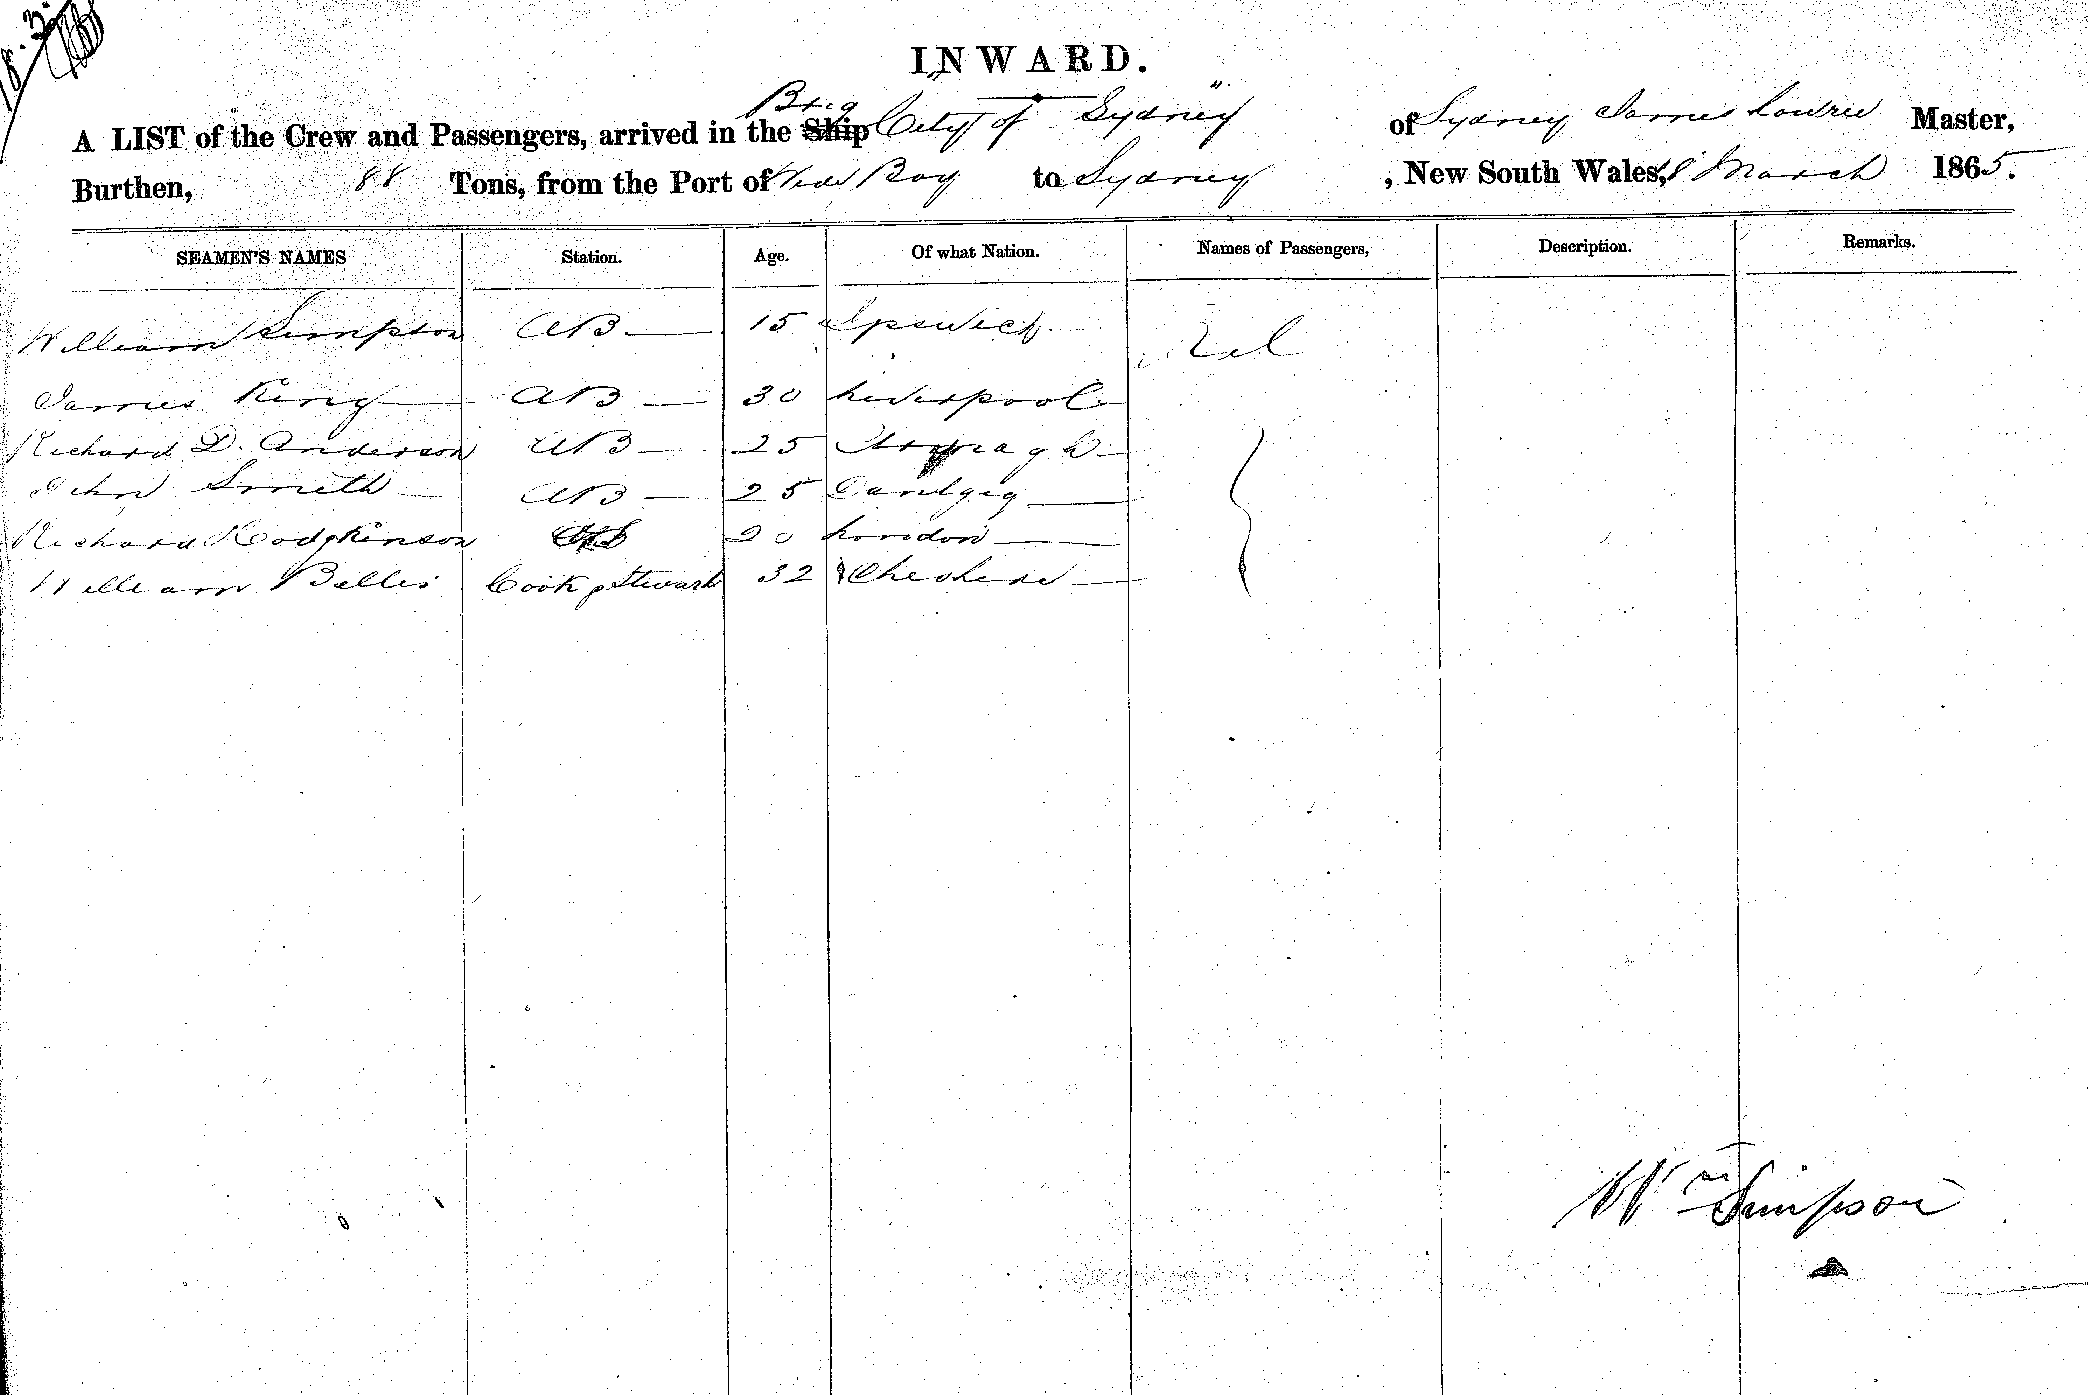 18.3.
INWARD.
A LIST of the Crew and Passengers, arrived in the Ship Brig "City of Sydney" of Sydney James Lowrie Master,
Burthen, 88 Tons, from the Port of Wide Bay to Sydney, New South Wales, 18 March 1865.
SEAMEN'S NAMES Station. Age. Of what Nation. Names of Passengers, Description. Remarks.
William Simpson AB 15 Ipswich Nil
James King AB 30 Liverpool
Richard D. Anderson AB 25 Armagh
John Smith AB 25 Dantzig
Richard Hodgkinson 20 London
William Bellis Cook & Steward 32 Cheshire
Wm Simpson